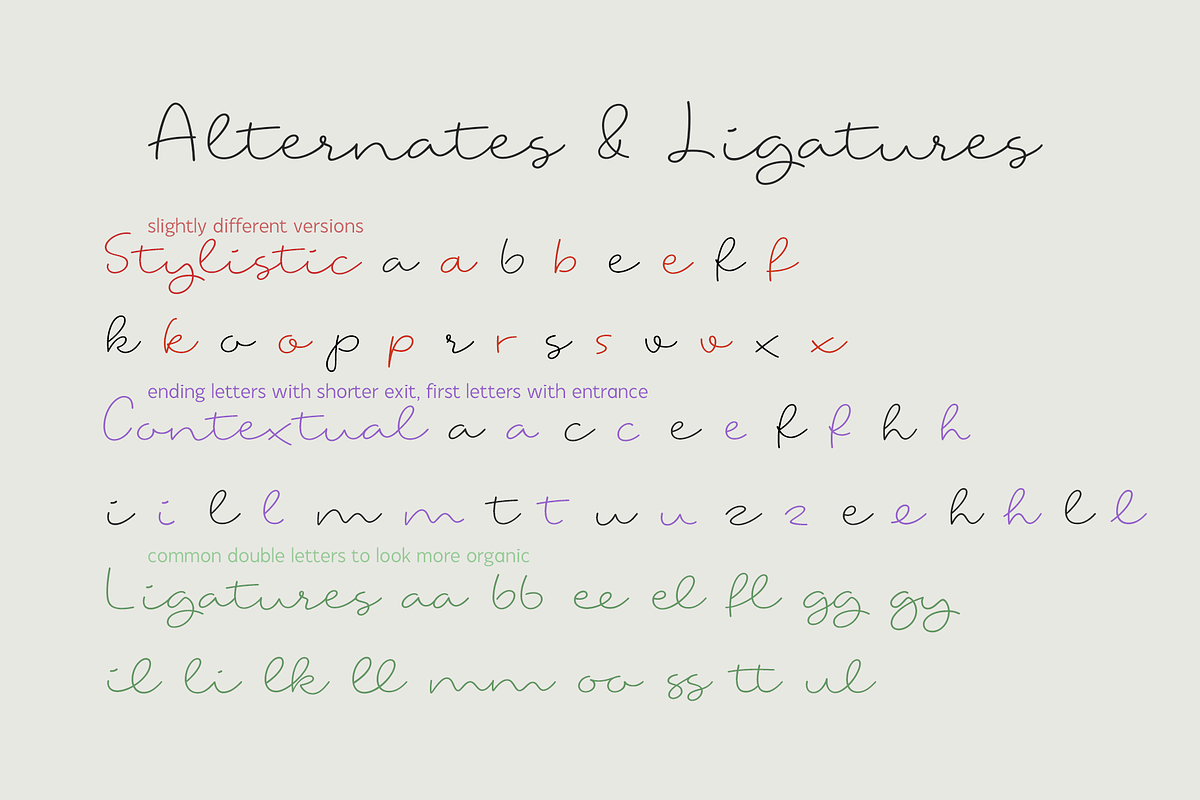 Alternates & Ligatures
slightly different versions
Stylistic a a b b e e f f
k k o o p p r r s s v v x x
ending letters with shorter exit, first letters with entrance
Contextual a a c c e e f f h h
i i l l m m t t u u z z e e h h l l
common double letters to look more organic
Ligatures aa bb ee el fl gg gy
il li lk ll mm oo ss tt ul